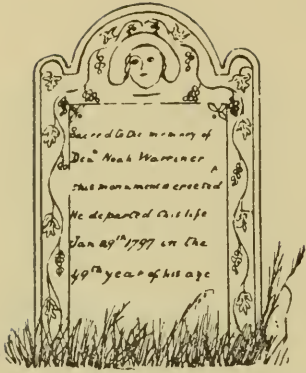 Sacred to the memory of
Dea.ⁿ Noah Warriner
this monument is erected
He departed this life
Jan 29th 1797 in the
49th year of his age